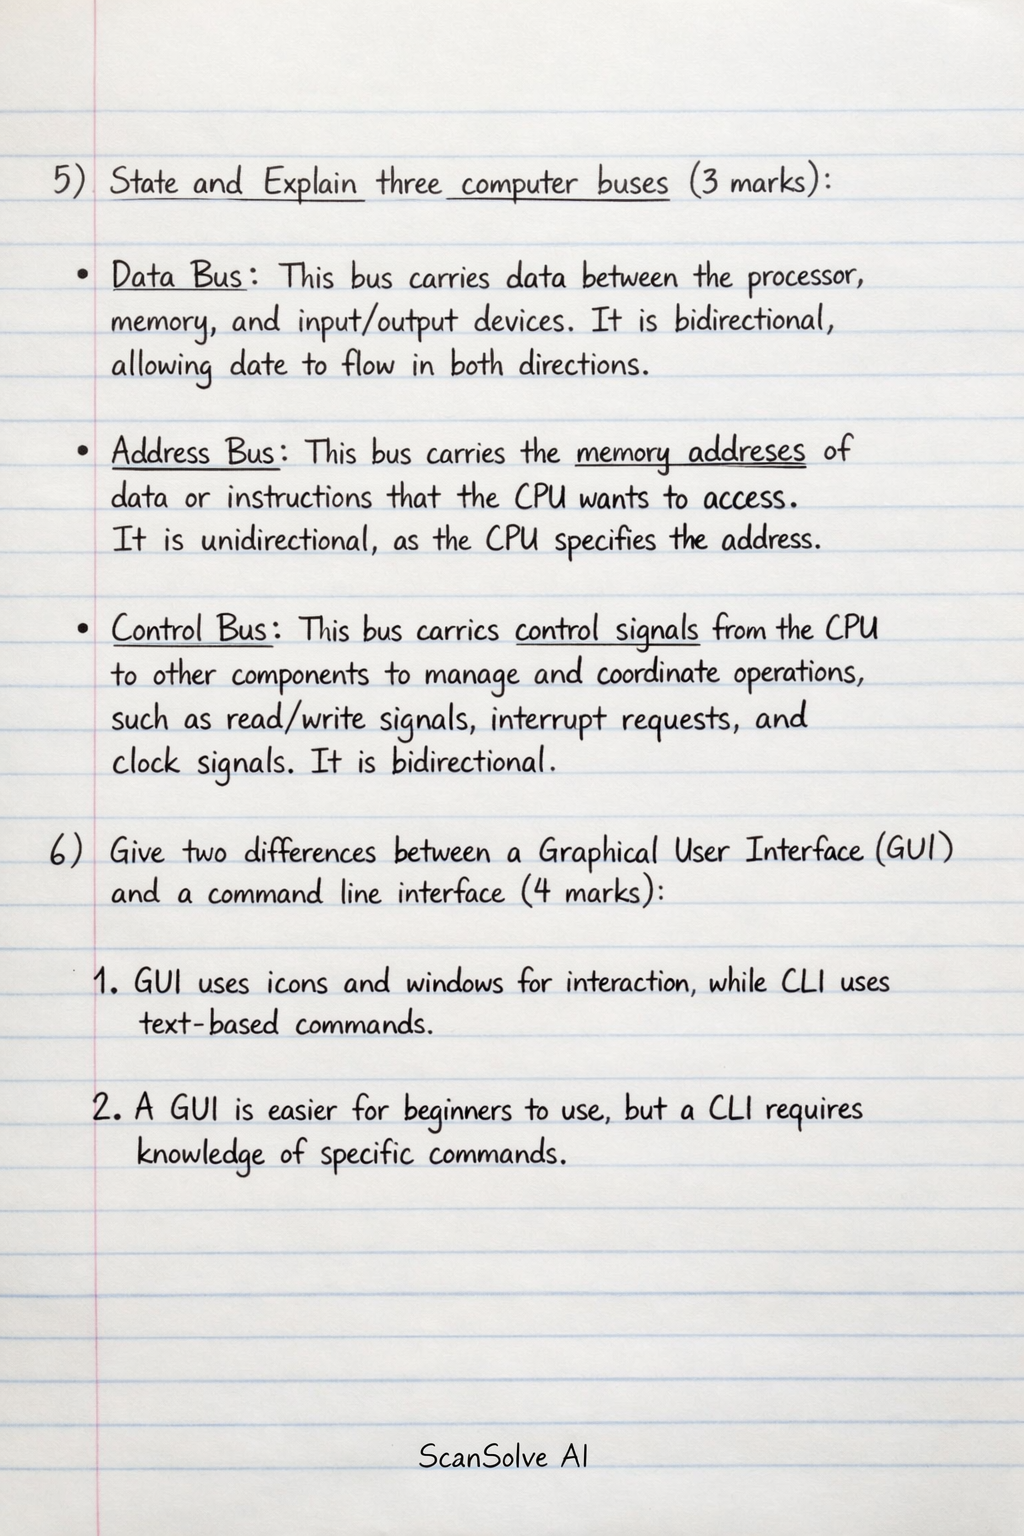 5) State and Explain three computer buses (3 marks):
• Data Bus: This bus carries data between the processor,
memory, and input/output devices. It is bidirectional,
allowing date to flow in both directions.
• Address Bus: This bus carries the memory addreses of
data or instructions that the CPU wants to access.
It is unidirectional, as the CPU specifies the address.
• Control Bus: This bus carrics control signals from the CPU
to other components to manage and coordinate operations,
such as read/write signals, interrupt requests, and
clock signals. It is bidirectional.
6) Give two differences between a Graphical User Interface (GUI)
and a command line interface (4 marks):
1. GUI uses icons and windows for interaction, while CLI uses
text-based commands.
2. A GUI is easier for beginners to use, but a CLI requires
knowledge of specific commands.
ScanSolve AI